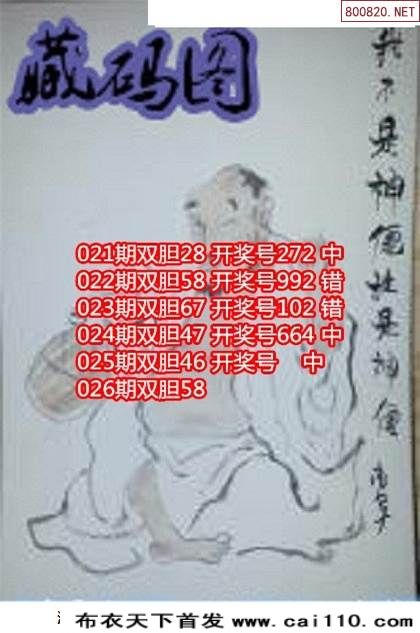 800820.NET
藏码图
我不是神僊胜是神僊
021期双胆28 开奖号272 中
022期双胆58 开奖号992 错
023期双胆67 开奖号102 错
024期双胆47 开奖号664 中
025期双胆46 开奖号 中
026期双胆58
布衣天下首发 www.cai110.com